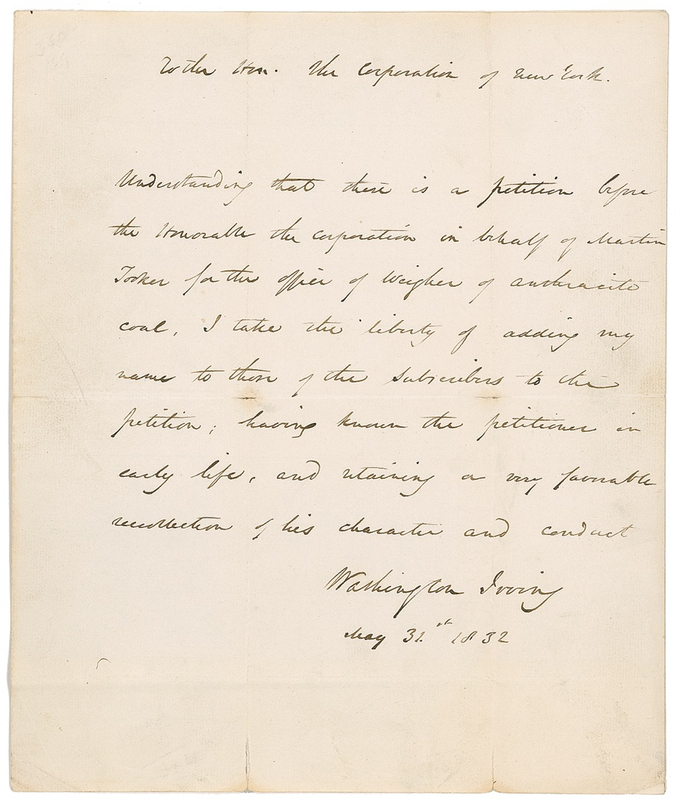 To the Hon. the Corporation of New York.
Understanding that there is a petition before
the Honorable the corporation in behalf of Martin
Tooker for the office of Weigher of anthracite
coal, I take the liberty of adding my
name to those of the subscribers to the
petition; having known the petitioner in
early life, and retaining a very favorable
recollection of his character and conduct
Washington Irving
May 31.st 1832